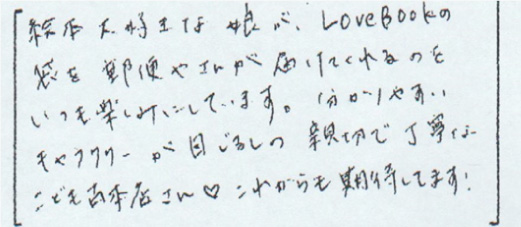 絵本大好きな娘が、LoveBookの
袋を郵便やさんが届けてくれるのを
いつも楽しみにしています。分かりやすい
キャラクターが目じるしの親切で丁寧な
こども古本店さん♡これからも期待してます!